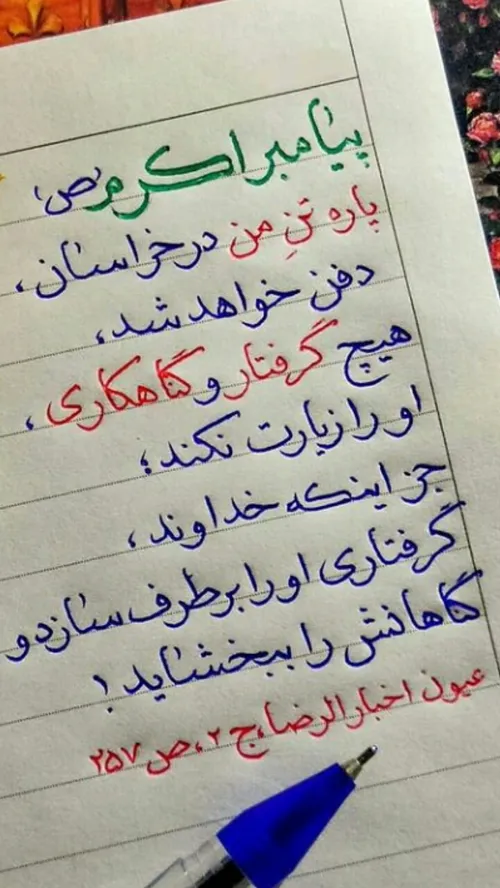 پیامبر اکرم (ص)
پاره تنِ من در خراسان،
دفن خواهد شد،
هیچ گرفتار و گناهکاری،
او را زیارت نکند؛
جز اینکه خداوند،
گرفتاری او را برطرف سازد و
گناهانش را ببخشاید!
عیون اخبارالرضا، ج ۲، ص ۲۵۷